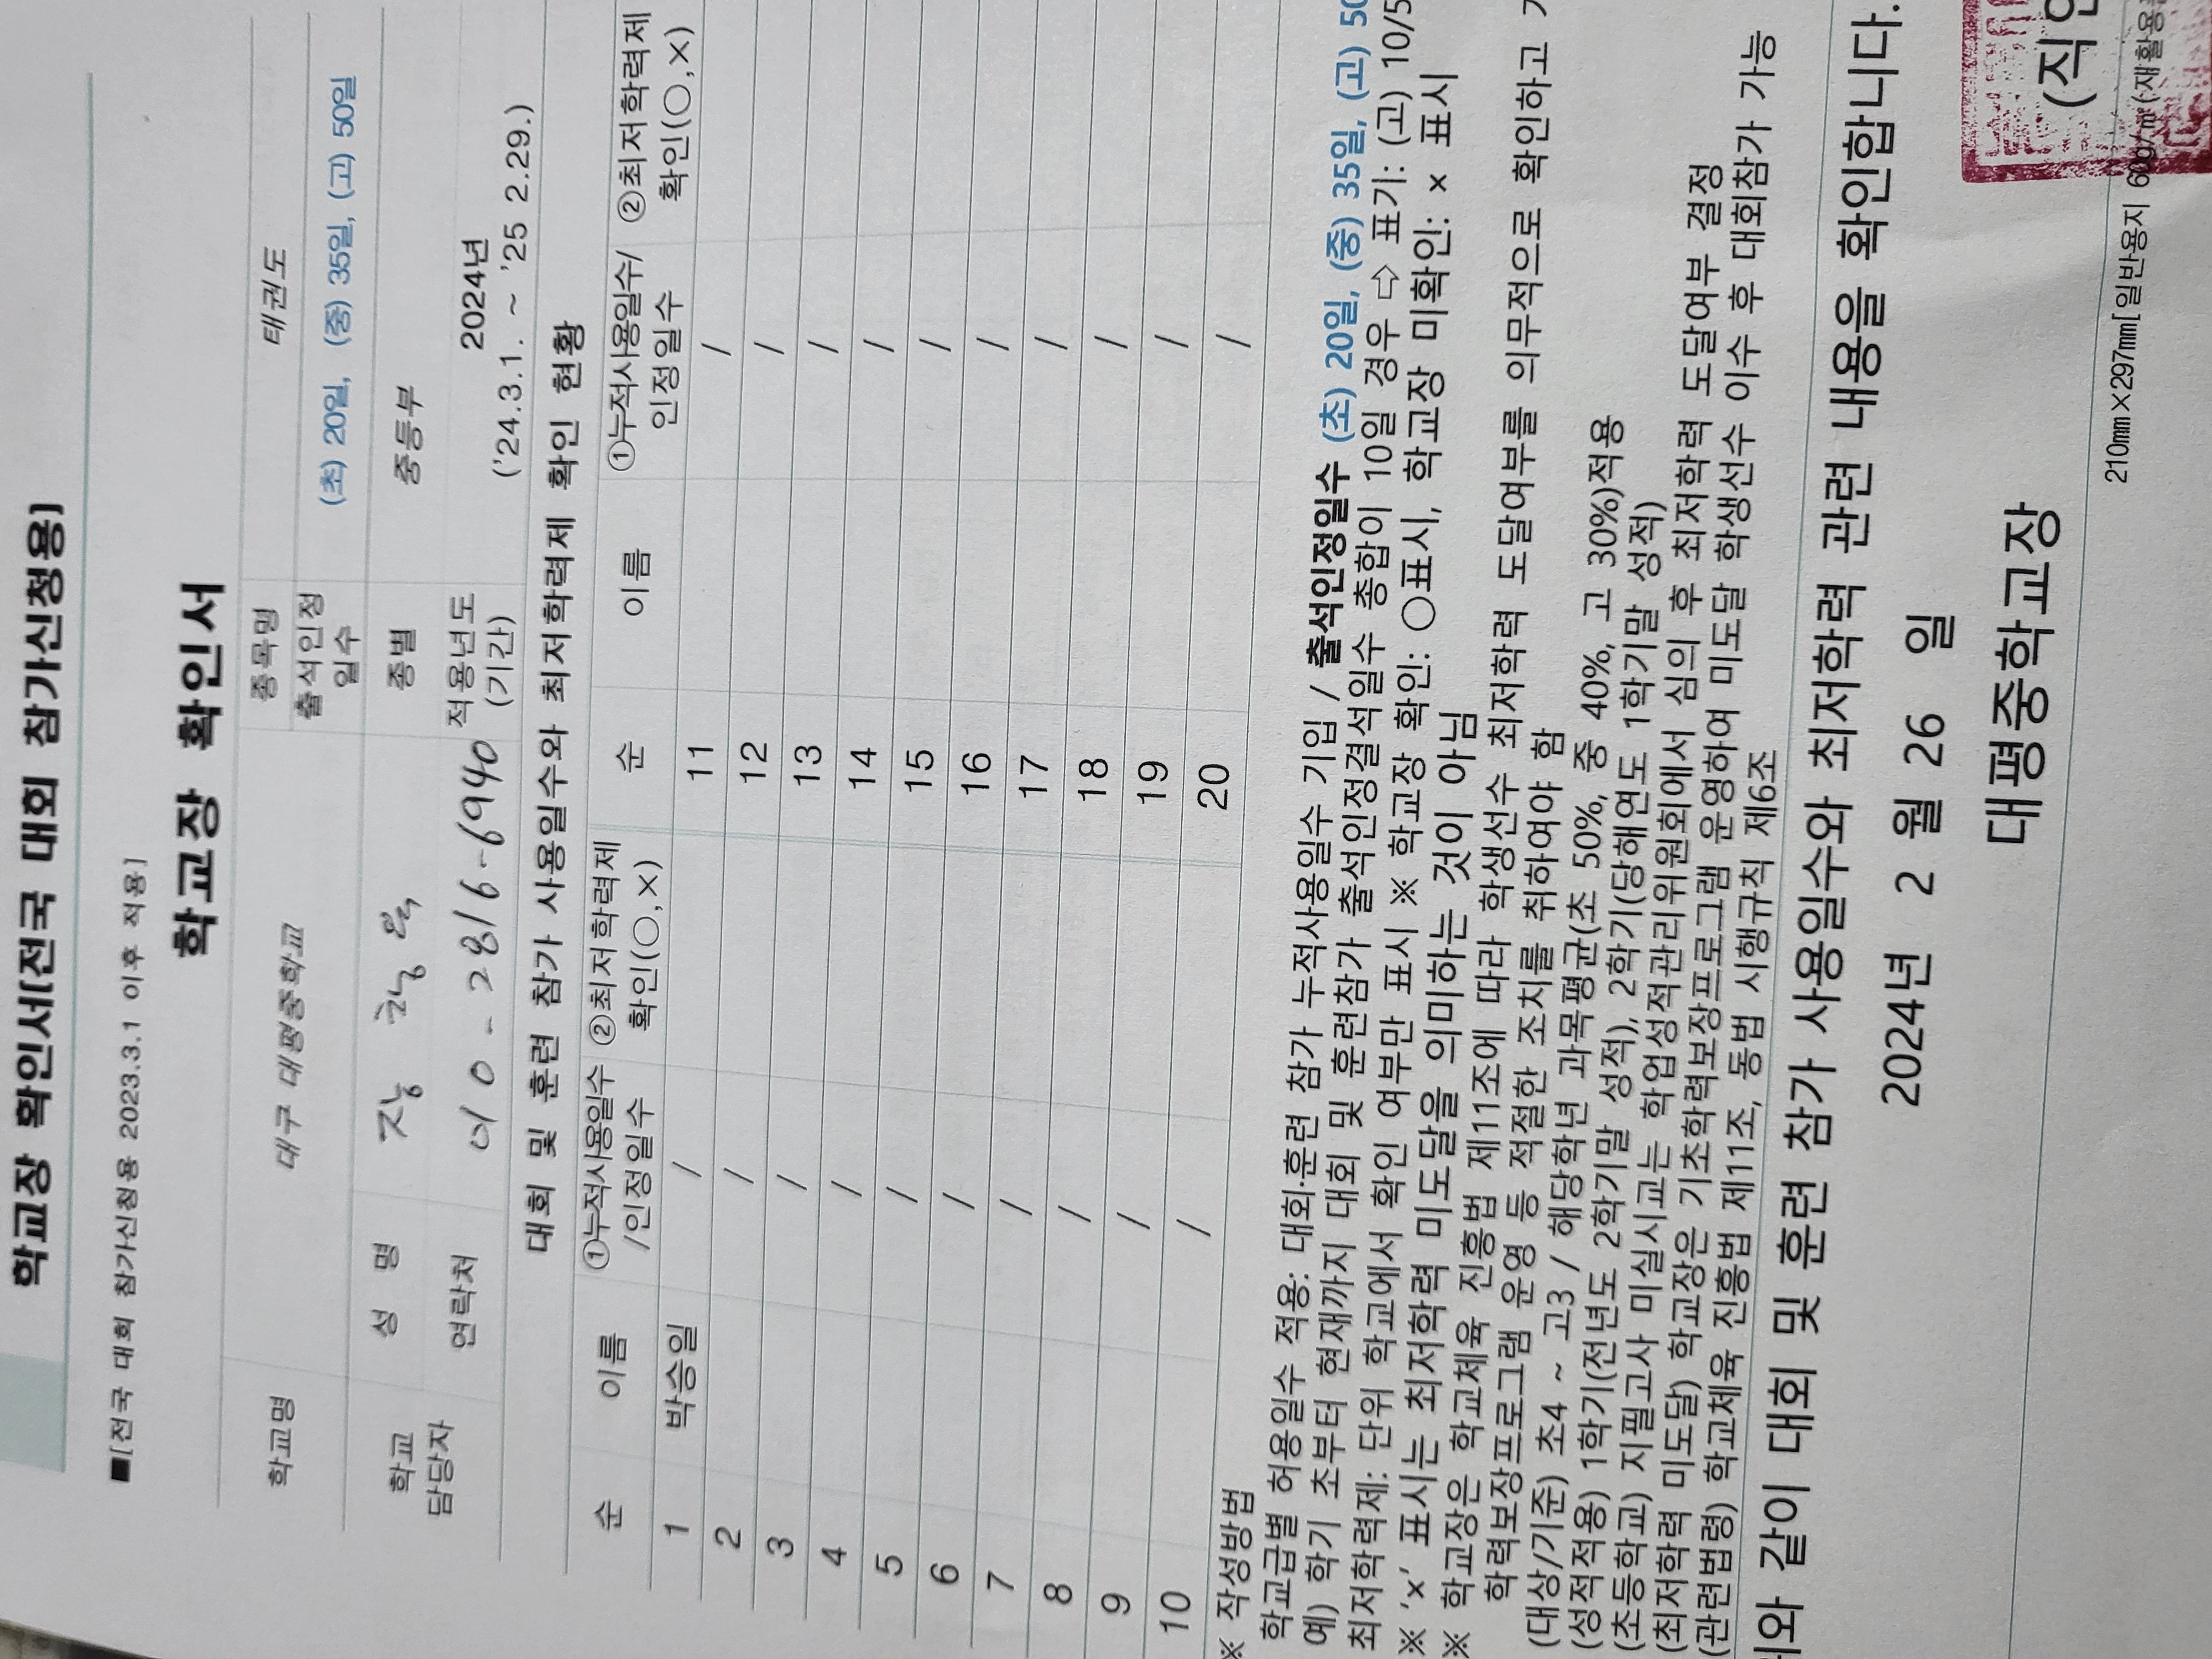 학교장 확인서[전국 대회 참가신청용]
■[전국 대회 참가신청용 2023.3.1 이후 적용]
학교장 확인서
학교명 대구 대평중학교 종목명 태권도
출석인정 일수 (초) 20일, (중) 35일, (고) 50일
학교 담당자 성 명 종별 중등부
연락처 010-2816-6940 적용년도 (기간) 2024년
('24.3.1. ~ '25 2.29.)
대회 및 훈련 참가 사용일수와 최저학력제 확인 현황
순 이름 ①누적사용일수/인정일수 ②최저학력제 확인(○,×) 순 이름 ①누적사용일수/인정일수 ②최저학력제 확인(○,×)
1 박승일 / 11 /
2 / 12 /
3 / 13 /
4 / 14 /
5 / 15 /
6 / 16 /
7 / 17 /
8 / 18 /
9 / 19 /
10 / 20 /
※ 작성방법
학교급별 허용일수 적용: 대회·훈련 참가 누적사용일수 기입 / 출석인정일수 (초) 20일, (중) 35일, (고) 50
예) 학기 초부터 현재까지 대회 및 훈련참가 출석인정결석일수 총합이 10일 경우 ⇨ 표기: (고) 10/5
최저학력제: 단위 학교에서 확인 여부만 표시 ※ 학교장 확인: ○표시, 학교장 미확인: × 표시
※ 'x' 표시는 최저학력 미도달을 의미하는 것이 아님
※ 학교장은 학교체육 진흥법 제11조에 따라 학생선수 최저학력 도달여부를 의무적으로 확인하고
학력보장프로그램 운영 등 적절한 조치를 취하여야 함
(대상/기준) 초4 ~ 고3 / 해당학년 과목평균(초 50%, 중 40%, 고 30%)적용
(성적적용) 1학기(전년도 2학기말 성적), 2학기(당해연도 1학기말 성적)
(초등학교) 지필고사 미실시교는 학업성적관리위원회에서 심의 후 최저학력 도달여부 결정
(최저학력 미도달) 학교장은 기초학력보장프로그램 운영하여 미도달 학생선수 이수 후 대회참가 가능
(관련법령) 학교체육 진흥법 제11조, 동법 시행규칙 제6조
위와 같이 대회 및 훈련 참가 사용일수와 최저학력 관련 내용을 확인합니다.
2024년 2 월 26 일
대평중학교장 (직인
210㎜×297㎜[일반용지 60g/㎡(재활용